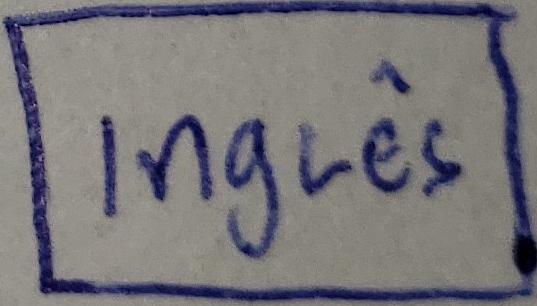 Inglês